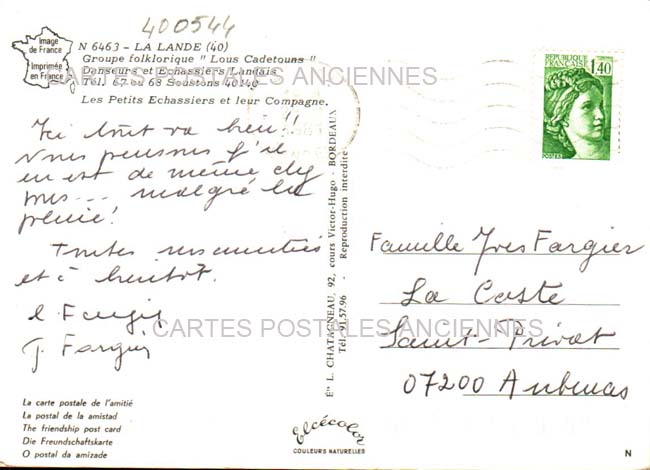 400544
Image
de France
Imprimée
en France
N 6463 - LA LANDE (40)
Groupe folklorique " Lous Cadetouns "
Danseurs et Echassiers Landais
Tél. 67 ou 68 Soustons 40140
Les Petits Echassiers et leur Compagne.
CARTES POSTALES ANCIENNES
Ici tout va bien!!
Nous pensons qu'il
en est de même chez
... malgré la
pluie!
Toutes nos amitiés
et à bientôt.
Fargier
J. Fargier
La carte postale de l'amitié
La postal de la amistad
The friendship post card
Die Freundschaftskarte
O postal da amizade
Éts L. CHATAGNEAU, 92, cours Victor-Hugo - BORDEAUX
Tél. 91.57.96 - Reproduction interdite
Elcécolor
COULEURS NATURELLES
REPUBLIQUE
FRANÇAISE
1,40
POSTES
Famille Yves Fargier
La Coste
Saint-Privat
07200 Aubenas
CARTES POSTALES ANCIENNES
N